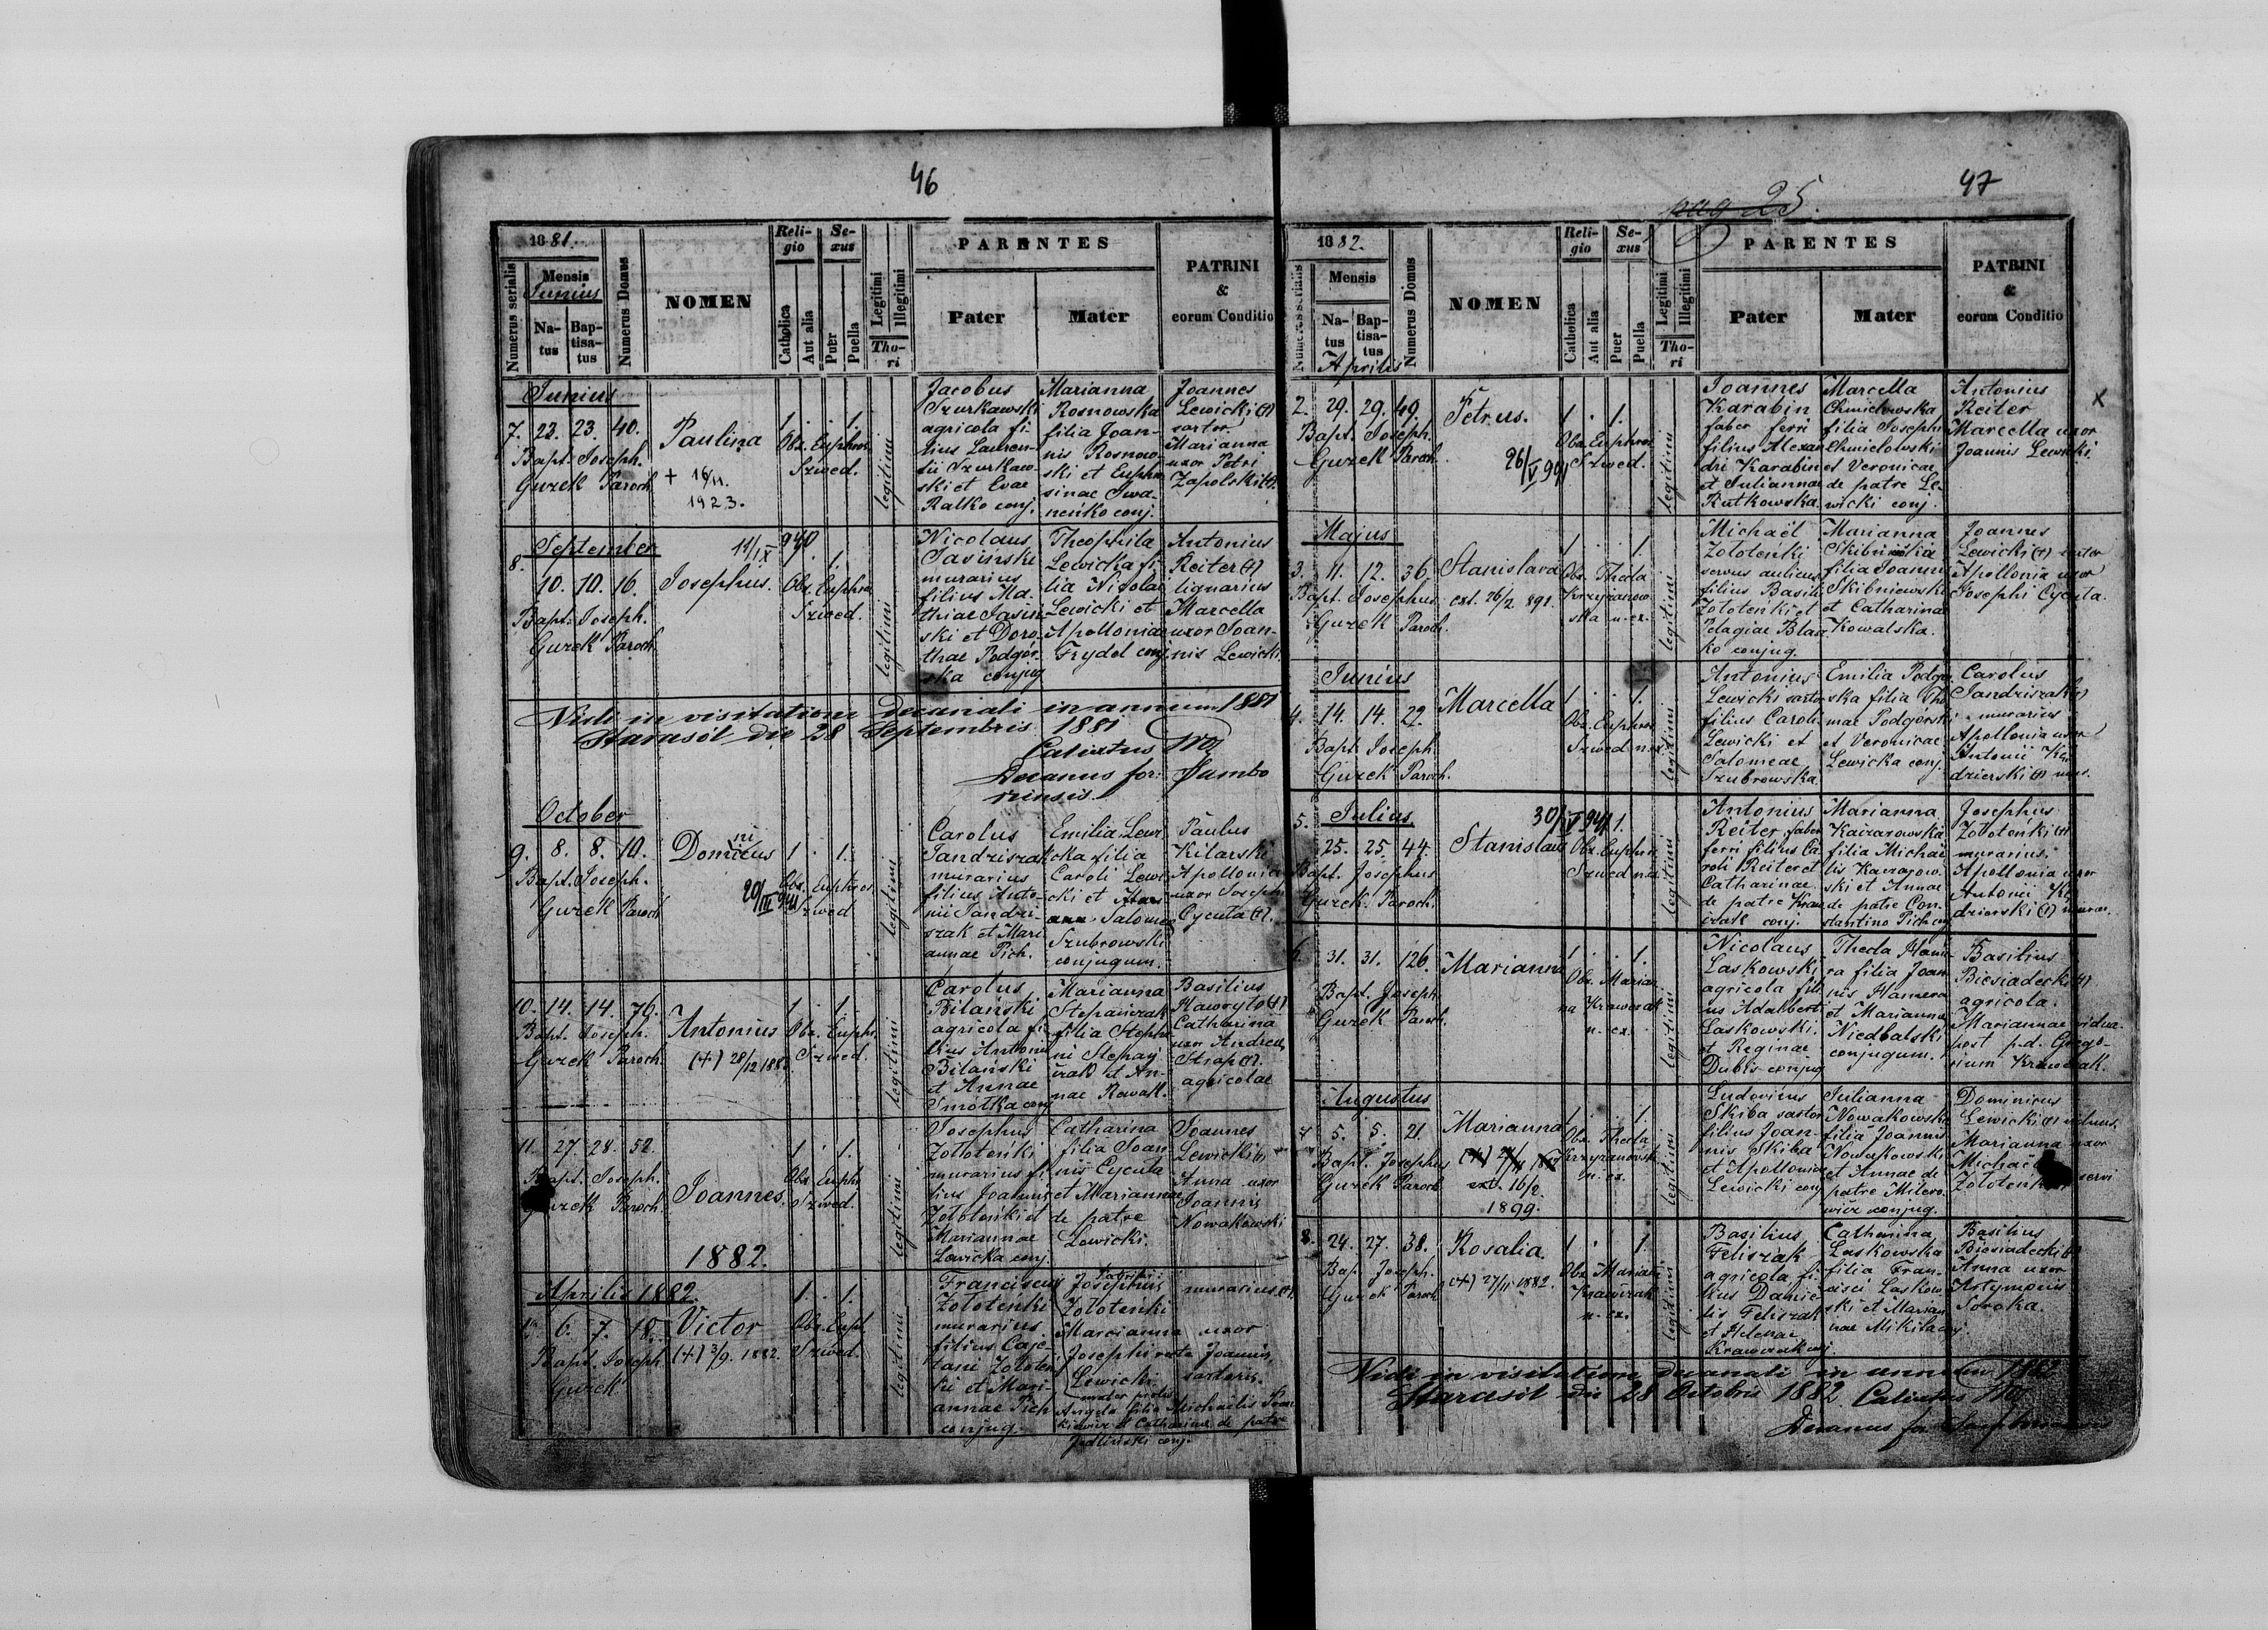 46
1881.
Numerus serialis
Mensis
Junius
Na-
tus
Bap-
tisa-
tus
Numerus Domus
NOMEN
Reli-
gio
Catholica
Aut alia
Se-
xus
Puer
Puella
Legitimi
Illegitimi
Tho-
ri
PARENTES
Pater
Mater
PATRINI
&
eorum Conditio
Junius
7. 23. 23. 40.
Bapt. Joseph.
Gurek Paroch.
Paulina
+ 16/11.
1923.
1. . . 1.
Obs. Euphros.
Szwed.
legitimi
Jacobus
Szurkawski
agricola fi-
lius Lauren-
tii Szurkaw-
ski et Evae
Ratko conj.
Marianna
Rosnowska
filia Joan-
nis Rosnow-
ski et Euphro
sinae Iwa-
nenko conj.
Joannes
Lewicki (+)
sartor.
Marianna
uxor Petri
Zapolski (+).
September
8.
10. 10. 16.
Bapt. Joseph.
Gurek Paroch.
11/IX 940
Josephus.
Obs. Euphros.
Szwed.
legitimi
Nicolaus
Jasinski
murarius
filius Ma-
thiae Jasin-
ski et Doro-
thae Podgór-
ska conjug.
Theophila
Lewicka fi-
lia Nicolai
Lewicki et
Apolloniae
Frydel conj.
Antonius
Reiter (+)
lignarius
Marcella
uxor Joan-
nis Lewicki.
Vidi in visitatione Decanali in annum 1881
Starasól die 28 Septembris 1881
Calixtus
Decanus for: Sambo
riensis.
October
9. 8. 8. 10.
Bapt. Joseph.
Gurek Paroch
ni
Domicus
20/III 941
1 . 1.
Obs. Euphros.
Szwed
legitimi
Carolus
Jandriszak
murarius
filius Anto-
nii Jandri-
szak et Mari
annae Pich.
Emilia Lewi-
cka filia
Caroli Lewi-
cki et
Salomea
Szubrowski
conjugum.
Paulus
Kilarski
Apollonia
uxor Joseph
Cycuta (+).
10. 14. 14. 76.
Bapt. Joseph.
Gurek Paroch.
Antonius
(+) 28/12 188
1 . 1.
Obs. Euphr.
Szwed.
legitimi
Carolus
Bilanski
agricola fi-
lius Antonii
Bilanski
et Annae
Smotka conj.
Marianna
Stepanczak
filia Stepha
ni Stepan
czak et An-
nae Kowal.
Basilius
Hawryto (+)
Catharina
uxor Andreae
Strap (+).
agricolae
11. 27. 28. 52.
Bapt. Joseph.
Gurek Paroch.
Joannes.
1 . 1.
Obs. Euphr.
Szwed.
legitimi
Josephus
Zototenki
murarius fi-
lius Joannis
Zototenki et
Mariannae
Lewicka conj.
Catharina
filia Joan-
nis Cycuta
et Mariannae
de patre
Lewicki.
Joannes
Lewicki (+)
Anna uxor
Joannis
Nowakowski
1882.
Aprilis 1882.
1. 6. 7. 18.
Bapt. Joseph.
Gurek
Victor
(+) 3/9. 1882.
1. . 1.
Obs. Euph.
Szwed.
legitimi
Franciscus
Zototenki
murarius
filius Caje-
tani Zototen
ki et Mari-
annae Pich
conjug.
Patrini:
Josephus
Zototenki
murarius (+)
Marcianna uxor
Josephi recte Joannis
Lewicki sartoris.
mater prolis
Angela filia Michaelis
et Catharinae de patre
Jedlinski conj.
47
pag 25.
1882.
Numerus serialis
Mensis
Na-
tus
Bap-
tisa-
tus
Aprilis
Numerus Domus
NOMEN
Reli-
gio
Catholica
Aut alia
Se-
xus
Puer
Puella
Legitimi
Illegitimi
Tho-
ri
PARENTES
Pater
Mater
PATRINI
&
eorum Conditio
2. 29. 29. 49.
Bapt. Joseph.
Gurek Paroch.
Petrus.
26/V 991
1 . 1.
Obs. Euphros.
Szwed.
legitimi
Joannes
Karabin
faber ferri
filius Alexan
dri Karabin
et Juliannae
Rutkowska.
Marcella
Chmielowska
filia Josephi
Chmielowski
et Veronicae
de patre Le-
wicki conj.
Antonius
Reiter
Marcella uxor
Joannis Lewicki
x
Majus
3. 11. 12. 36.
Bapt. Josephus
Gurek Paroch.
Stanislava
ext. 26/2 891.
1 . . 1.
Obs. Thecla
Krzyzanow-
ska n. ex.
legitimi
Michaël
Zototenki
servus aulicus
filius Basilii
Zototenki et
Pelagiae Blasz
ko conjug.
Marianna
Skibniewska
filia Joannis
Skibniewski
et Catharina
Kowalska.
Joannes
Lewicki (+) sartor
Apollonia uxor
Josephi Cycuta.
Junius
4. 14. 14. 22.
Bapt. Joseph
Gurek Paroch.
Marcella
1 . . 1.
Obs. Euphros.
Szwed n. ex.
legitimi
Antonius
Lewicki sartor
filius Caroli
Lewicki et
Salomeae
Szubrowska.
Emilia Podgór
ska filia Tho
mae Podgórski
et Veronicae
Lewicka conj.
Carolus
Jandriszak (+)
murarius
Apollonia uxor
Antonii Kę
dzierski (+) mur.
5.
Julius
25. 25. 44.
Bapt. Josephus
Gurek Paroch.
30/V 941
Stanislaus
1.
Obs. Euphros.
Szwed n. ex.
legitimi
Antonius
Reiter, faber
ferri filius Ca
roli Reiter et
Catharinae
de patre Kraw
czak conj.
Marianna
Kaczarowska
filia Michaë
lis Kaczarow-
ski et Annae
de patre Con-
stantino Pich conj.
Josephus
Zototenki (+)
murarius.
Apollonia uxor
Antonii Kę
dzierski (+) murar.
6. 31. 31. 126.
Bapt. Joseph
Gurek Paroch.
Marianna
1 . . 1.
Obs. Marian
na Krawczak
n. ex.
legitimi
Nicolaus
Laskowski
agricola fili
us Adalberti
Laskowski
et Reginae
Dubis conjug
Thecla Hame
ra filia Joan
nis Hamera
et Marianna
Niedbalski
conjugum.
Basilius
Biesiadecki (+)
agricola.
Mariannae vidua
post p.d. Grego-
rium Krawczak.
Augustus
7 5. 5. 21.
Bapt. Josephus
Gurek Paroch
Marianna
ext. 16/2.
1899.
1 . . 1.
Obs. Thecla
Krzyzanowska
n. ex.
legitimi
Ludovicus
Skiba sartor
filius Joan-
nis Skiba
et Apollonia
Lewicki conj.
Julianna
Nowakowska
filia Joannis
Nowakowski
et Annae de
patre Milero
wicz conjug.
Dominicus
Lewicki (+) viduus.
Marianna uxor
Michaë
Zototenki servi
8. 24. 27. 38.
Bap. Joseph.
Gurek Paroch
Rosalia.
(+) 27/11 1882.
1 . . 1.
Obs. Marian
Krawczak
n. ex.
legitimi
Basilius
Feliszak
agricola, fi-
lius Danie-
lis Feliszak
et Helenae
Krawczak conj.
Catharina
Laskowska
filia Fran-
cisci Laskow
ski et Marian
nae Mikila conj.
Basilius
Biesiadecki (+)
Anna uxor
Artymonis
Soroka.
Vidi in visitatione decanali in annum 1882
Starasól die 28 Octobris 1882 Calixtus
Decanus for.